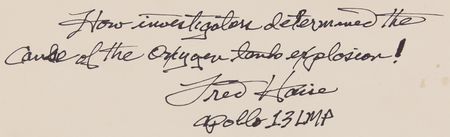 How investigators determined the
cause of the Oxygen tank explosion!
Fred Haise
Apollo 13 LMP